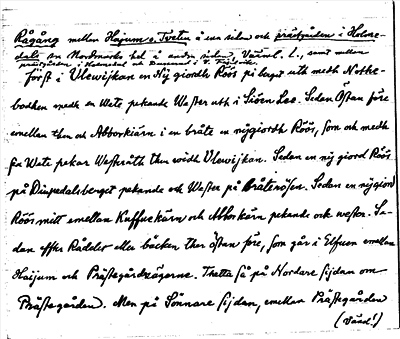 Rågång mellan Haijum o. Tveten å ena sidan och prästgården i Holme-
dals sn Nordmarks hd å andra sidan, Värml. L., samt mellan
prästgården i Holmedal och
Först i Ulewijkan en Ny giordh Röös på berget uth medh Nolke-
backen medh en Wete pekande Wäster uth i Siöen Lee. Sedan Östan före
emellan then och Abborkiärn i en bråte en nygiordh Röös, som och medh
sin Wete pekar Westrätt then widh Ulewijkan. Sedan en ny giord Röös
på Diupedalsberget pekande och Wäster på Bråterösen. Sedan en nygiord
Röös mitt emellan Kufferkärn och Abborkärn pekande ock wester. Se-
dan effter Rådelen eller bäcken ther östan före, som går i Elfuen emellan
Haijum och Prästegårdzägorne. Thetta så på Nordare sijdan om
Prästegården. Men på Sönnare sijdan, emellan Prästegården
(Vänd!)